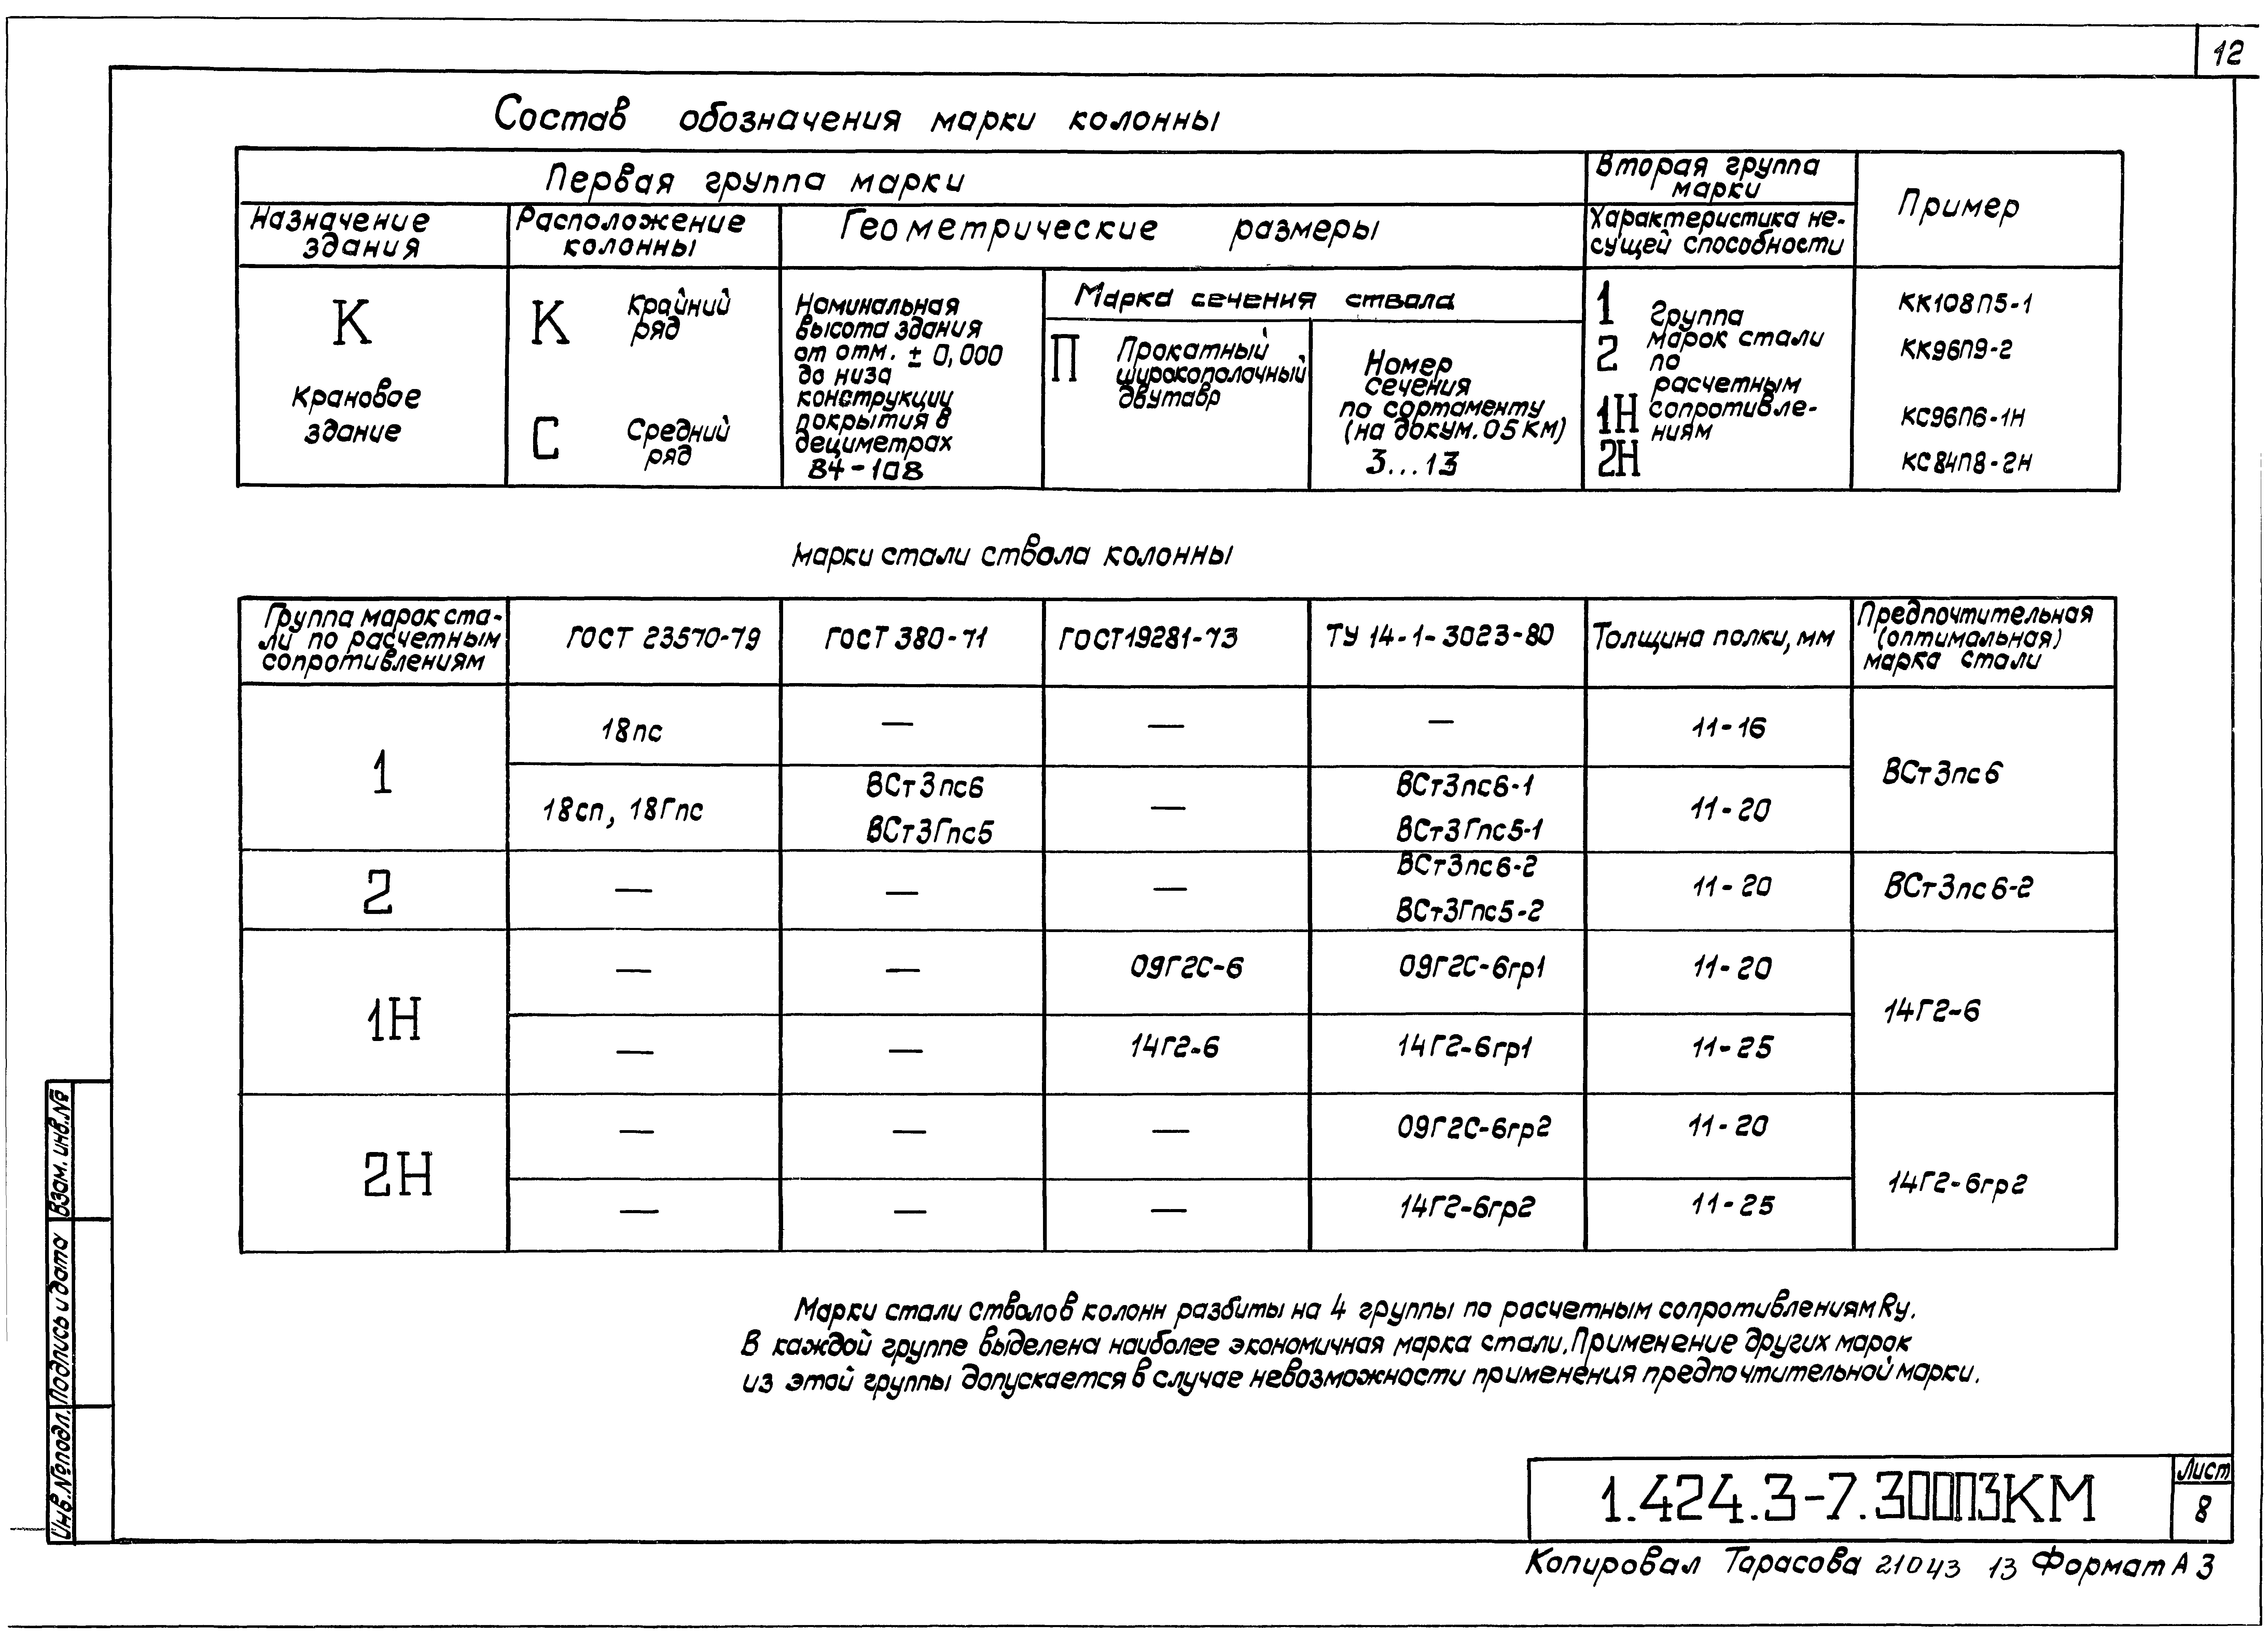 12
Состав обозначения марки колонны
Первая группа марки
Вторая группа
марки
Пример
Назначение
здания
Расположение
колонны
Геометрические размеры
Характеристика не-
сущей способности
К
Крановое
здание
К Крайний
ряд
С Средний
ряд
Номинальная
высота здания
от отм. ± 0,000
до низа
конструкции
покрытия в
дециметрах
84-108
Марка сечения ствола
П Прокатный
широкополочный
двутавр
Номер
сечения
по сортаменту
(на докум. 05 КМ)
3...13
1
2
1Н
2Н
Группа
марок стали
по
расчетным
сопротивле-
ниям
КК108П5-1
КК96П9-2
КС96П6-1Н
КС84П8-2Н
Марки стали ствола колонны
Группа марок ста-
ли по расчетным
сопротивлениям
ГОСТ 23570-79
ГОСТ 380-71
ГОСТ19281-73
ТУ 14-1-3023-80
Толщина полки, мм
Предпочтительная
(оптимальная)
марка стали
1
18пс — — — 11-16
ВСт3пс6
18сп, 18Гпс
ВСт3пс6
ВСт3Гпс5
—
ВСт3пс6-1
ВСт3Гпс5-1
11-20
2
— — —
ВСт3пс6-2
ВСт3Гпс5-2
11-20
ВСт3пс6-2
1Н
— — 09Г2С-6 09Г2С-6гр1 11-20
14Г2-6
— — 14Г2-6 14Г2-6гр1 11-25
2Н
— — — 09Г2С-6гр2 11-20
14Г2-6гр2
— — — 14Г2-6гр2 11-25
Марки стали стволов колонн разбиты на 4 группы по расчетным сопротивлениям Ry.
В каждой группе выделена наиболее экономичная марка стали. Применение других марок
из этой группы допускается в случае невозможности применения предпочтительной марки.
Инв.№подл. Подпись и дата Взам. инв.№
1.424.3-7.300ПЗКМ
Лист
8
Копировал Тарасова 21043 13 Формат А3